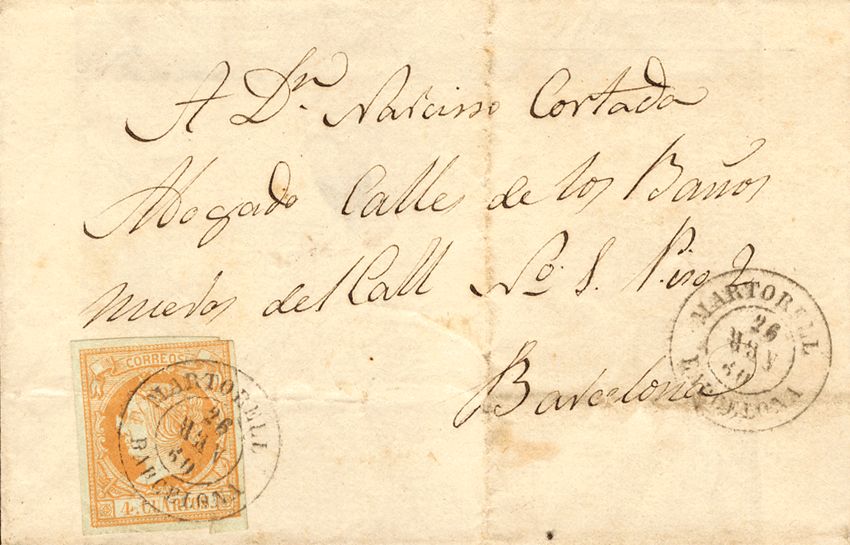 A Dn. Narciso Cortada
Abogado Calle de los Baños
nuevos del Call No. 8. Piso 2
Barcelona
MARTORELL
26
MAY
60
BARCELONA
CORREOS
4. CUARTOS
MARTORELL
26
MAY
60
BARCELONA